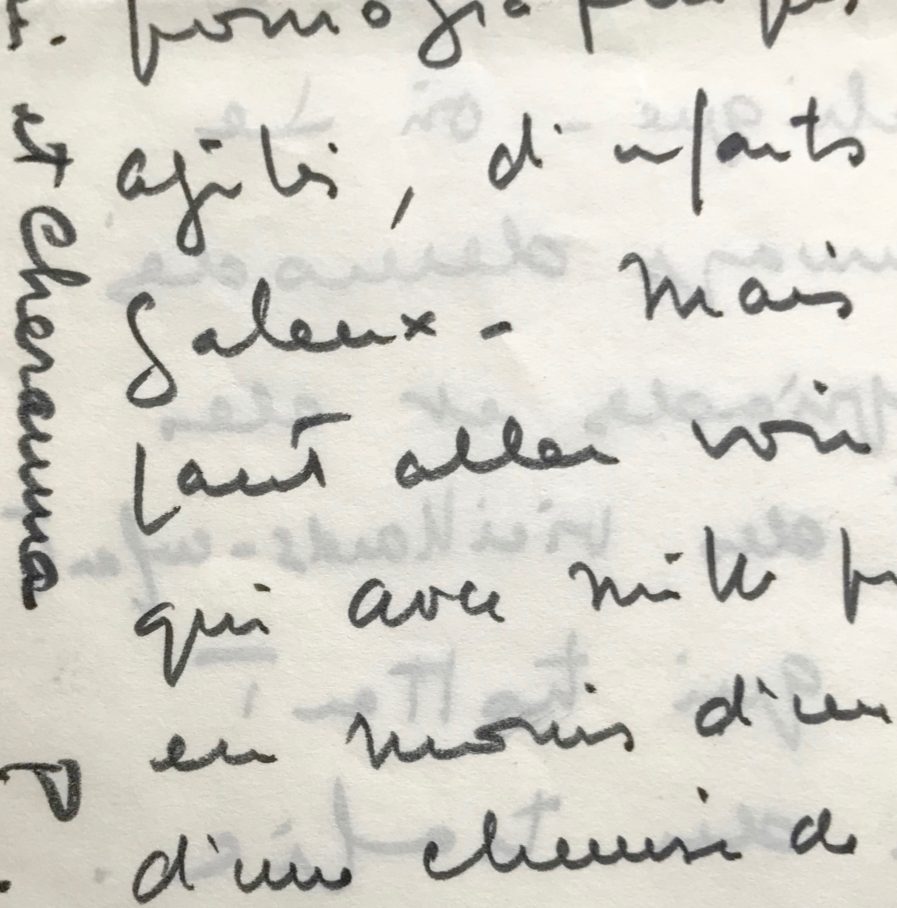 agités, d'enfants
galeux - Mais
faut aller voir
qui avec mille
en moins d'un
d'une chemise de
et Cheramma